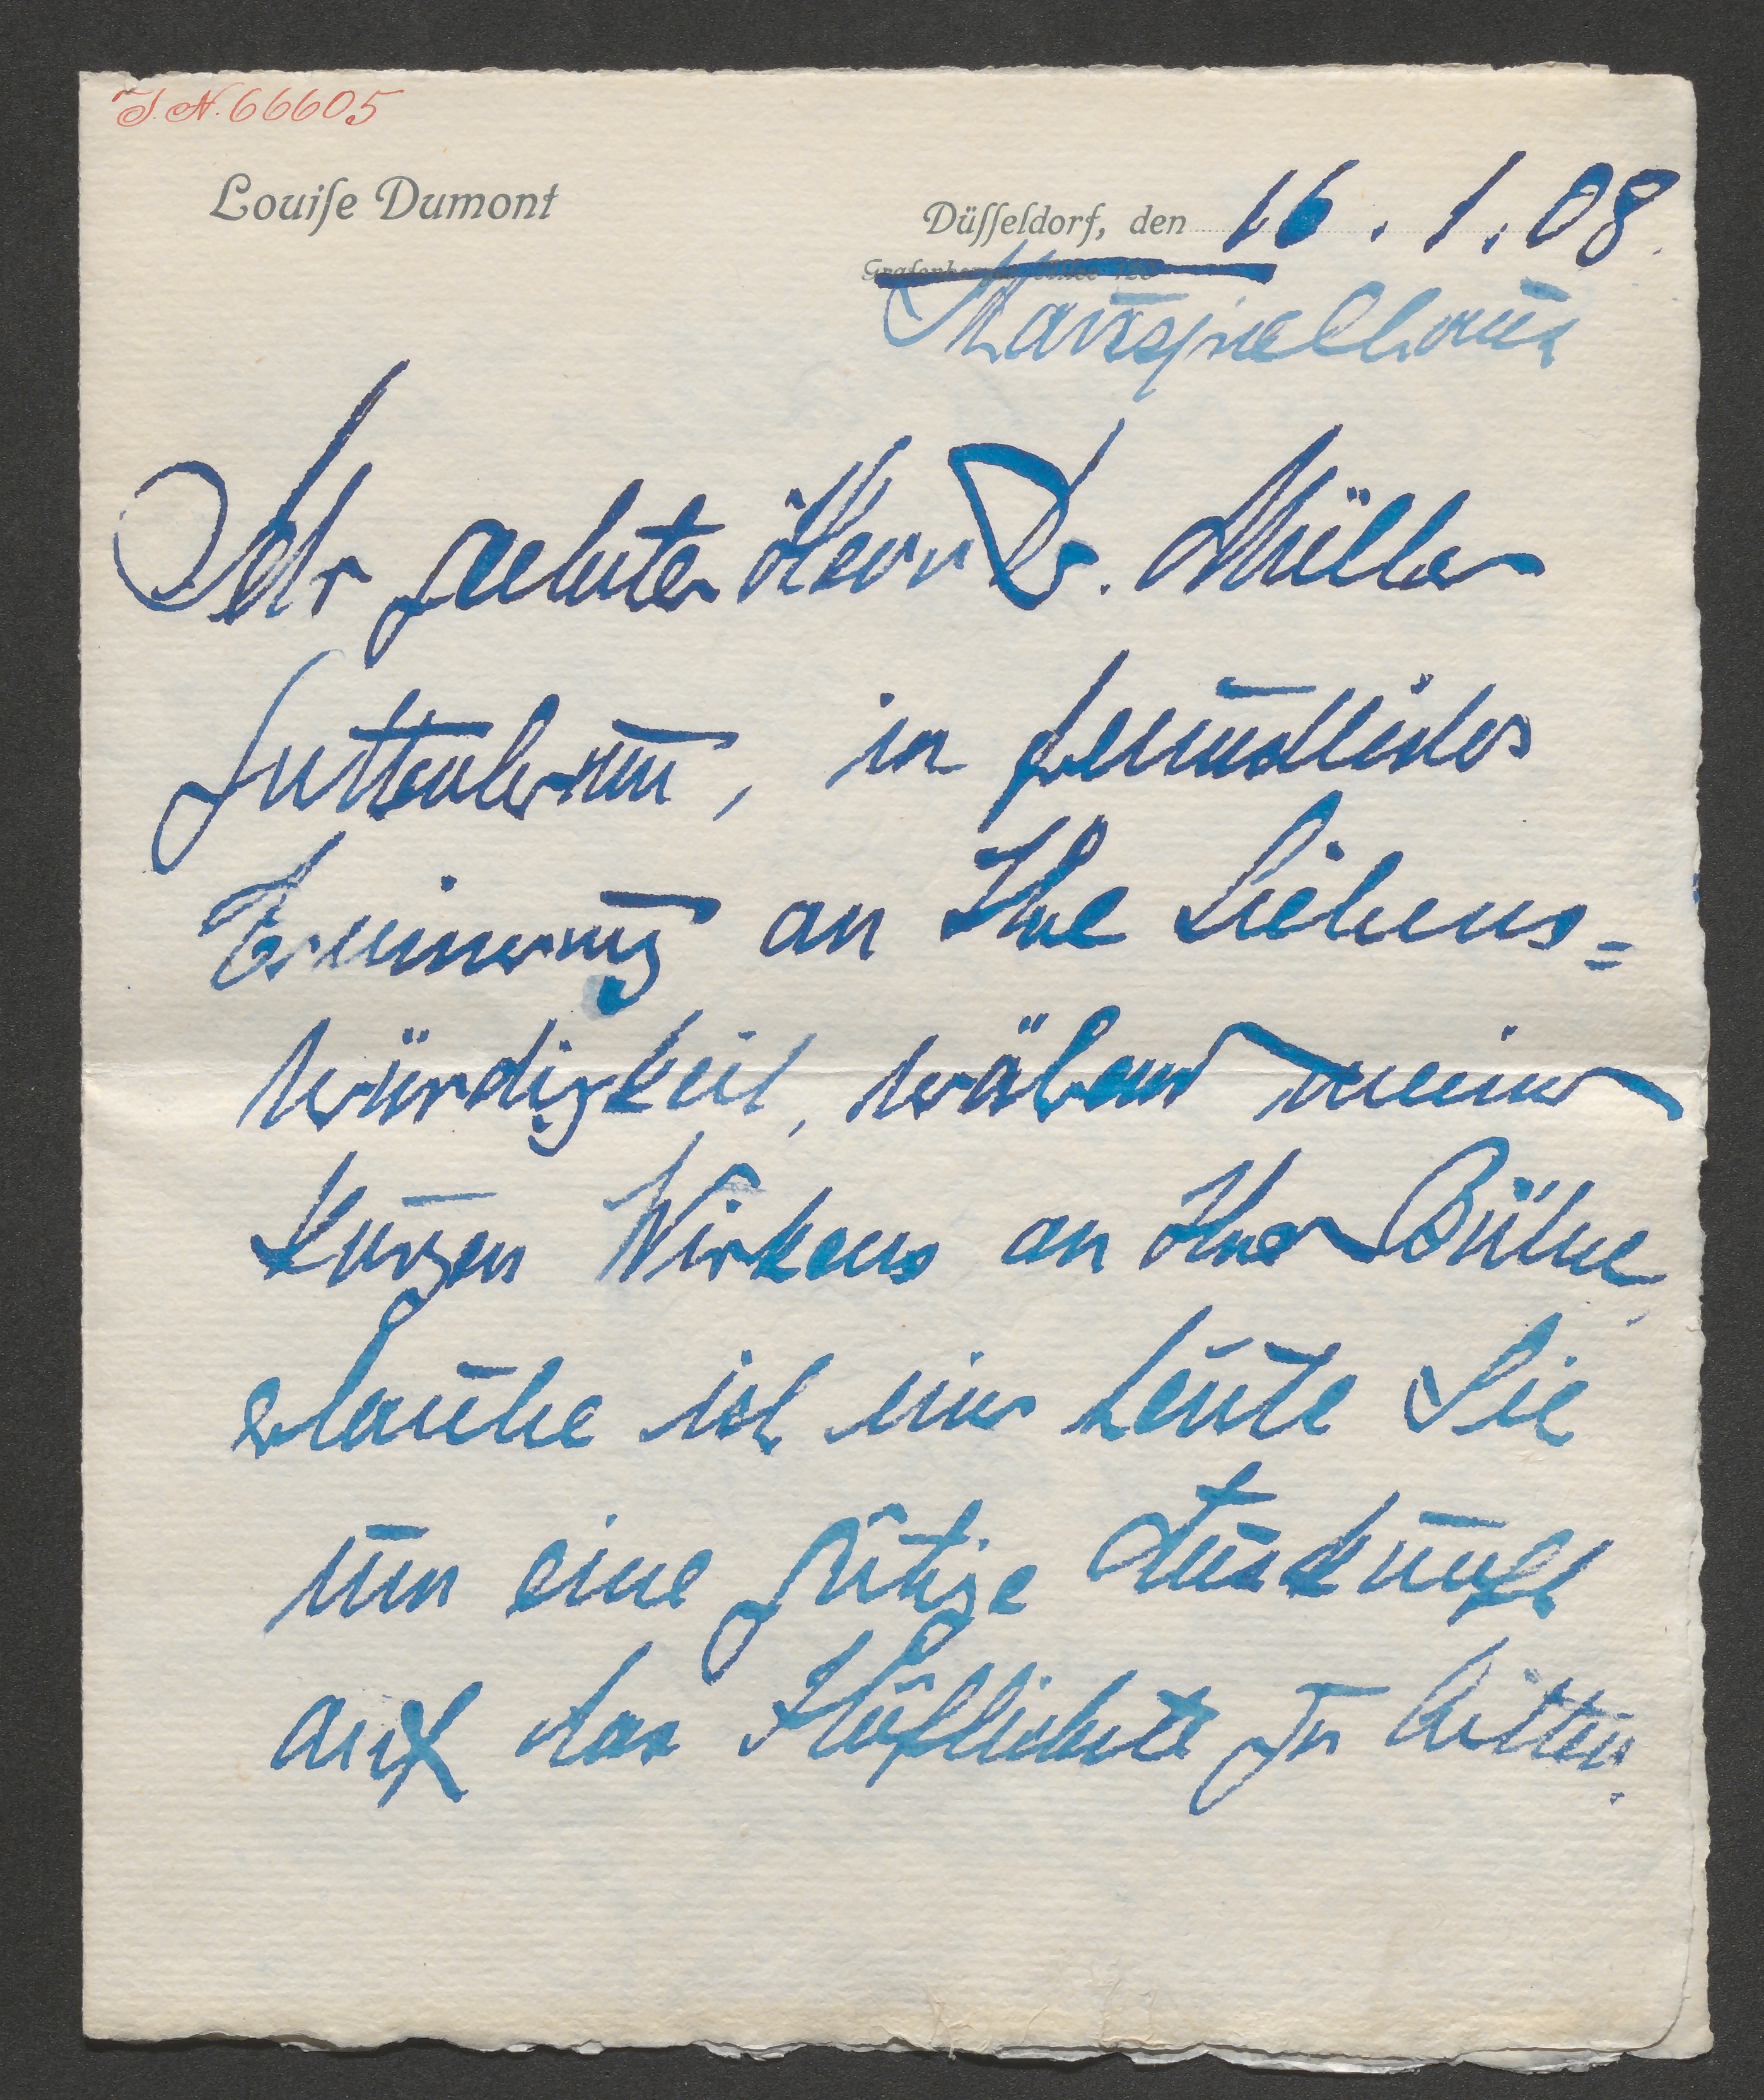 I.N. 66605
Louiſe Dumont
Düſſeldorf, den 16. 1. 08.
Schauspielhaus
Sehr geehrter Herr Dr. Müller
Guttenbrunn, in freundlicher
Erinnerung an Ihre Liebens=
würdigkeit, während meines
kurzen Wirkens an Ihrer Bühne,
erlaube ich mir heute Sie
um eine gütige Auskunft
auf das Höflichste zu bitten.